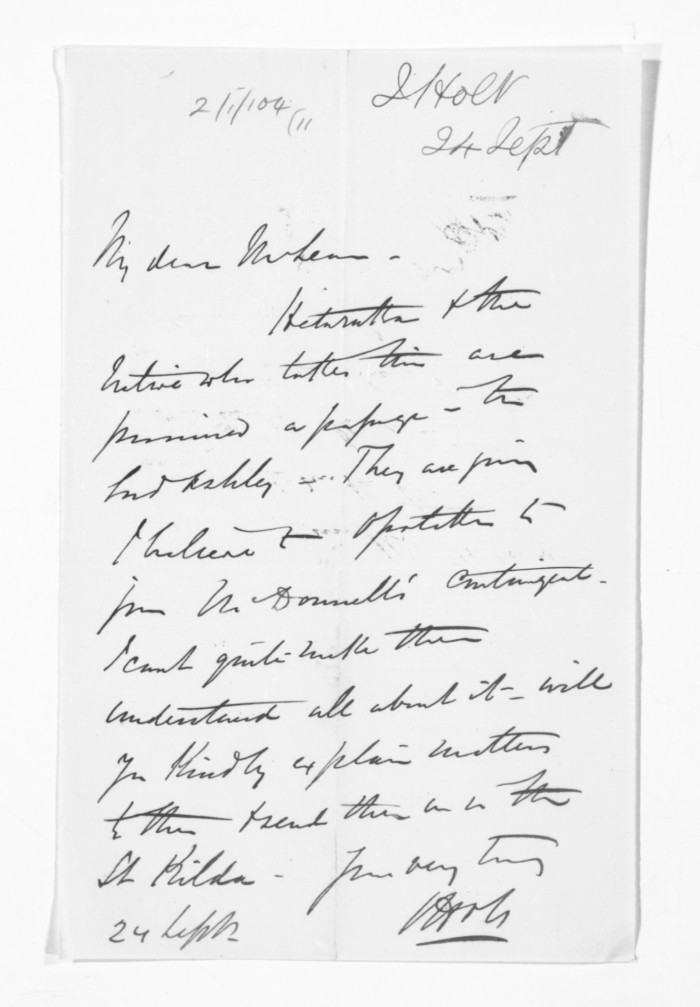 2/1/104/11
J Holt
24 Sept
My dear McLean -
Hetaraka & the
Native who takes this are
promised a passage - the
Lord Ashley - They are going
I believe to Opotiki to
join McDonnell's contingent -
I can't quite make them
understand all about it - will
you kindly explain matters
to them & send them on in the
St Kilda - Yours very truly
Holt
24 Sept